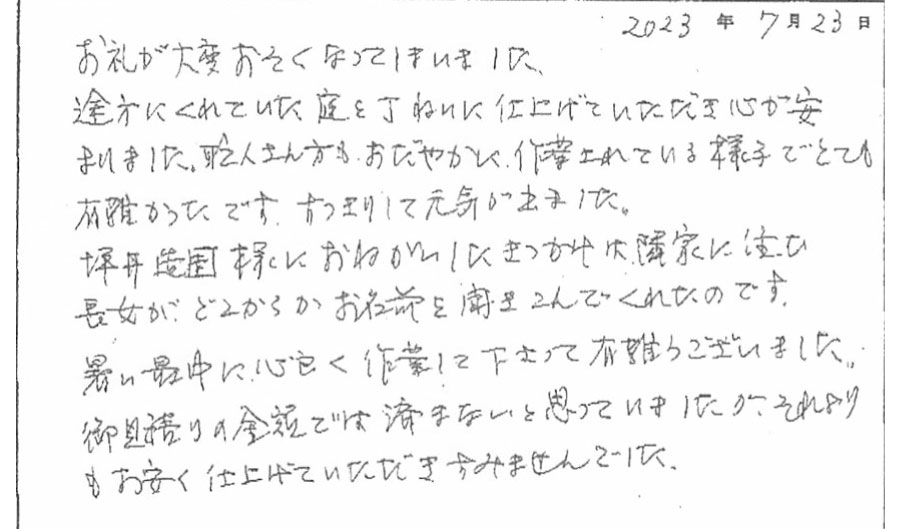 2023年7月23日
お礼が大変おそくなってしまいました、
途方にくれていた庭を丁ねいに仕上げていただき心が安
まりました。職人さん方も、おだやかに、作業されている様子でとても
有難かったです。すっきりして元気が出ました。
坪井造園様におねがいしたきっかけは、隣家に住む
長女が、どこからかお名前を聞きこんでくれたのです。
暑い最中に、心良く作業して下さって有難うございました。
御見積りの金額では済まないと思っていましたが、それより
もお安く仕上げていただきすみませんでした。